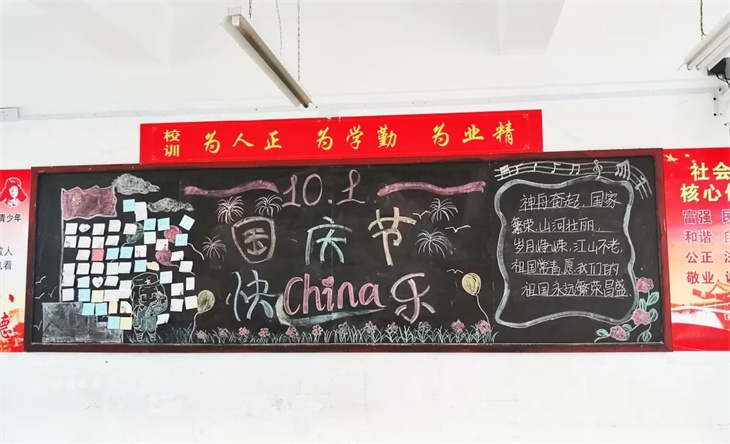 校训 为人正 为学勤 为业精
10.1
国庆节
快China乐
神舟奋起，国家
繁荣，山河壮丽，
岁月峥嵘，江山不老，
祖国常青，愿我们的
祖国永远繁荣昌盛
青少年
人
看
德
社会
核心
富强 民
和谐 自
公正 法
敬业，诚